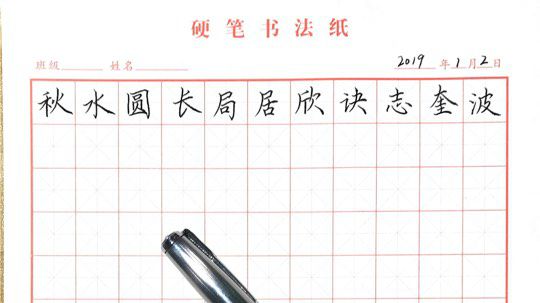 硬笔书法纸
班级 姓名 2019年1月2日
秋水圆长局居欣诀志奎波